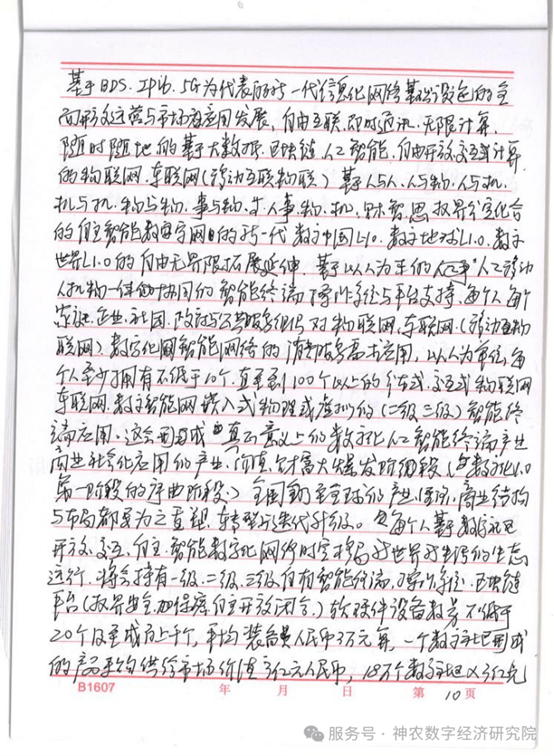 基于BDS、IPv6、5G为代表的新一代信息化网络基础设施的全
面开放运营与市场应用发展，自由互联、即时通讯、无限计算、
随时随地的基于大数据、区块链、人工智能、自由开放交互计算
的物联网、车联网（移动互联物联）基于人与人、人与物、人与机、
机与机、物与物、事与物、人事物、机、智思权界
的自主智能数字网的新一代数字中国1.0、数字地球1.0、数字
世界1.0的自由无界限拓展延伸。基于以人为主的人工移动
人机物一体协同的智能终端操作系统与平台支持，每个人每个
家庭、企业、社团、政府与服务组织对物联网、车联网（移动互物
联网）数字化智能网络的消费服务需求应用，以人为单位，每
个人至少拥有不低于10个，直至到100个以上的体式、交互式物联网
车联网、数字智能网嵌入式物理或虚拟的（二级三级）智能终
端应用。这会形成真正意义上的数字化人工智能终端产业
商业社会化应用的产业、价值、财富大爆发阶段（数字化1.0
第一阶段的序曲阶段。）全国乃至全球的产业、经济、商业结构
与布局都要为之重塑、转型与迭代升级。每个人基于数字社区
开放交互、自主、智能数字化网络时空世界的生态
运行，将会持有一级、二级、三级自有智能终端、操作系统、区块链
平台（权界安全加保障自主开放闭合）软硬件设备数等不低于
20个甚至成百上千个，平均装备人民币3万元算，一个数字社区形成
的产品平均供给市场价值3亿元人民币，18万个数字社区×3亿元
B1607 年 月 日 第 10 页
服务号·神农数字经济研究院